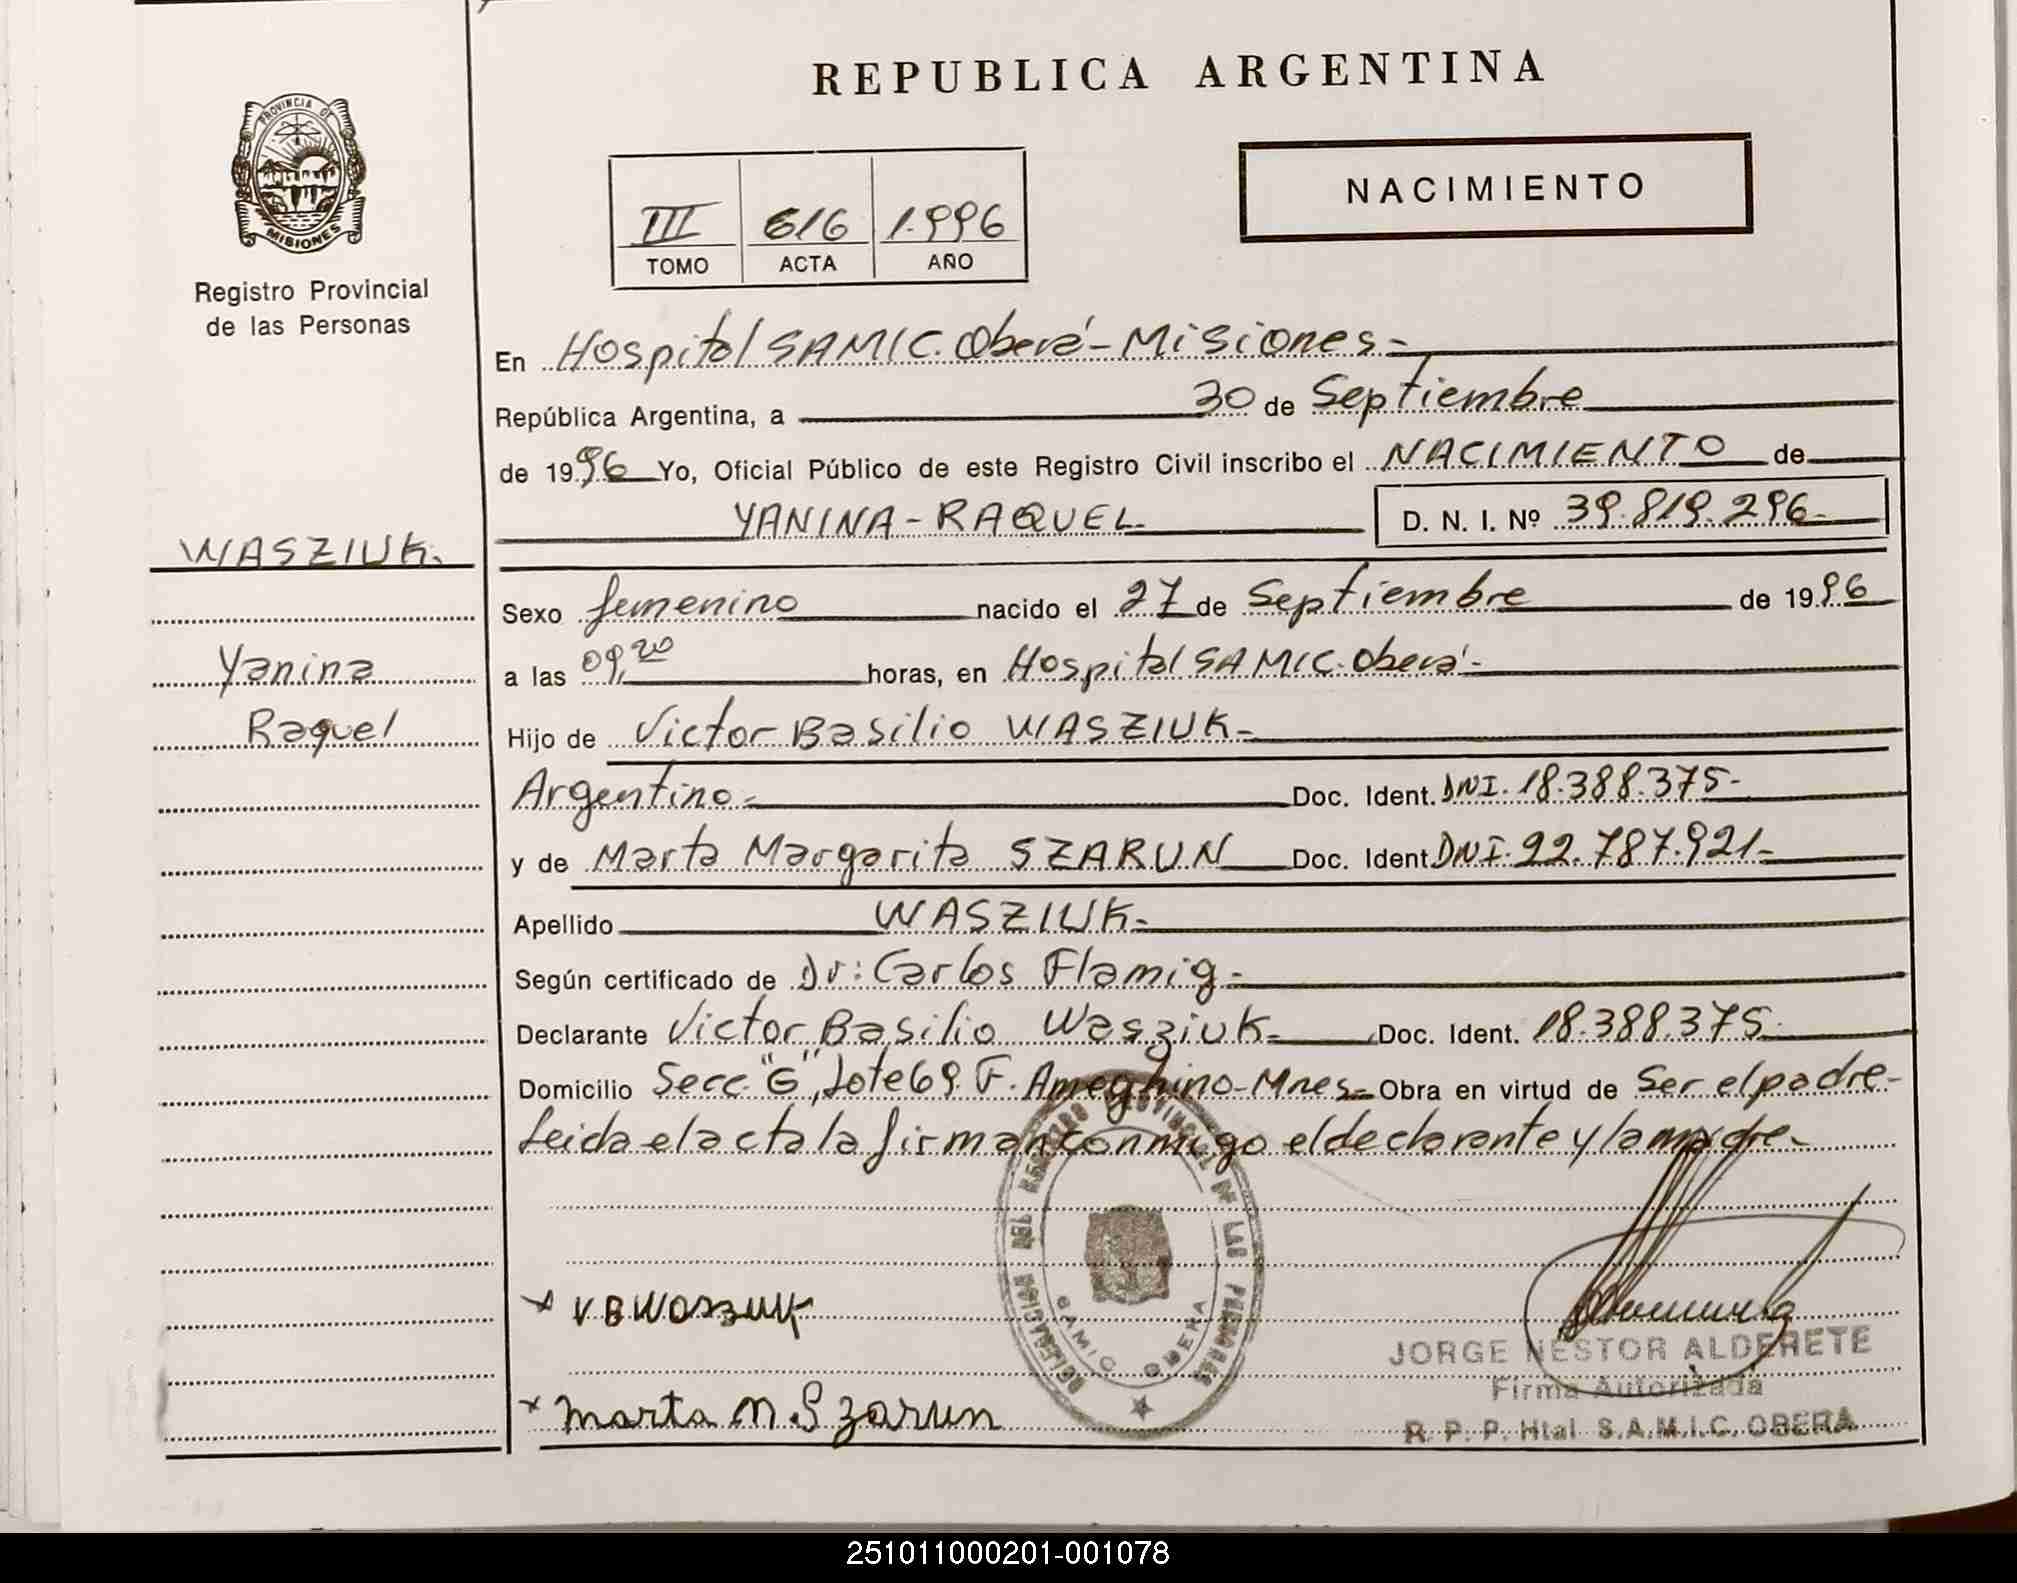 REPUBLICA ARGENTINA
PROVINCIA DE
MISIONES
Registro Provincial
de las Personas
NACIMIENTO
III 616 1.996
TOMO ACTA AÑO
En Hospital SAMIC. Oberá - Misiones -
República Argentina, a 30 de Septiembre
de 1996 Yo, Oficial Público de este Registro Civil inscribo el NACIMIENTO de
YANINA - RAQUEL D. N. I. Nº 39.819.296-
WASZIUK.
Yanina
Raquel
Sexo femenino nacido el 27 de Septiembre de 1996
a las 09,20 horas, en Hospital SAMIC. Oberá -
Hijo de Victor Basilio WASZIUK -
Argentino - Doc. Ident. DNI. 18.388.375 -
y de Marta Margarita SZARUN Doc. Ident. DNI. 22.787.921 -
Apellido WASZIUK -
Según certificado de Dr: Carlos Flamig -
Declarante Victor Basilio Wasziuk - Doc. Ident. 18.388.375 -
Domicilio Secc. "G", Lote 69. F. Ameghino - Mnes - Obra en virtud de Ser el padre -
Leida el acta la firman conmigo el declarante y la madre -
DELEGACION DEL REGISTRO PROVINCIAL DE LAS PERSONAS
SAMIC OBERA
x V B Wasziuk
x Marta M. Szarun
JORGE NESTOR ALDERETE
Firma Autorizada
R. P. P. Htal S.A.M.I.C. OBERA
251011000201-001078